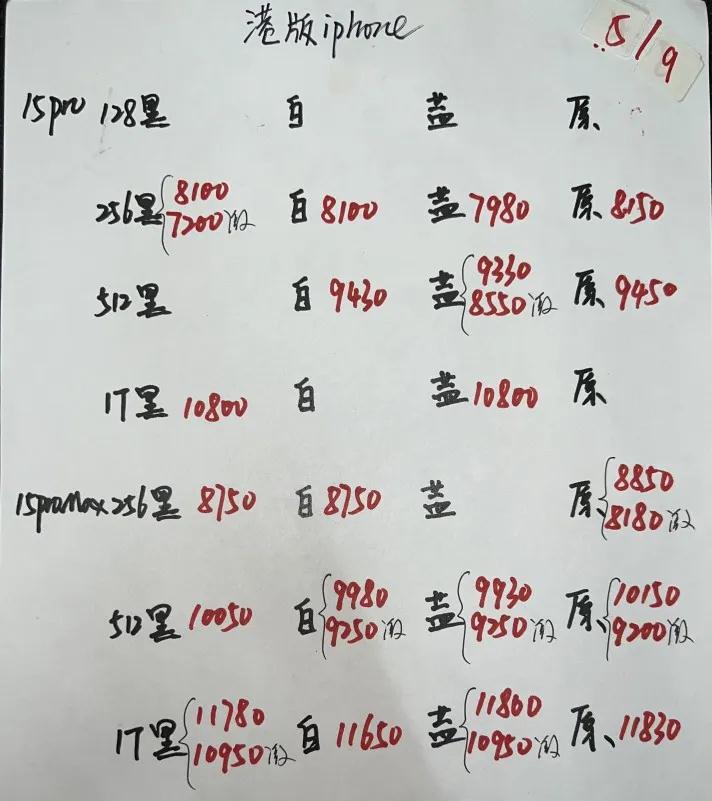 港版iphone
5/9
15pro 128黑 白 蓝 原
256黑 8100 7200激 白 8100 蓝 7980 原 8150
512黑 白 9430 蓝 9330 8550激 原 9450
1T黑 10800 白 蓝 10800 原
15promax 256黑 8750 白 8750 蓝 原 8850 8180激
512黑 10050 白 9980 9250激 蓝 9930 9250激 原 10150 9200激
1T黑 11780 10950激 白 11650 蓝 11800 10950激 原 11830